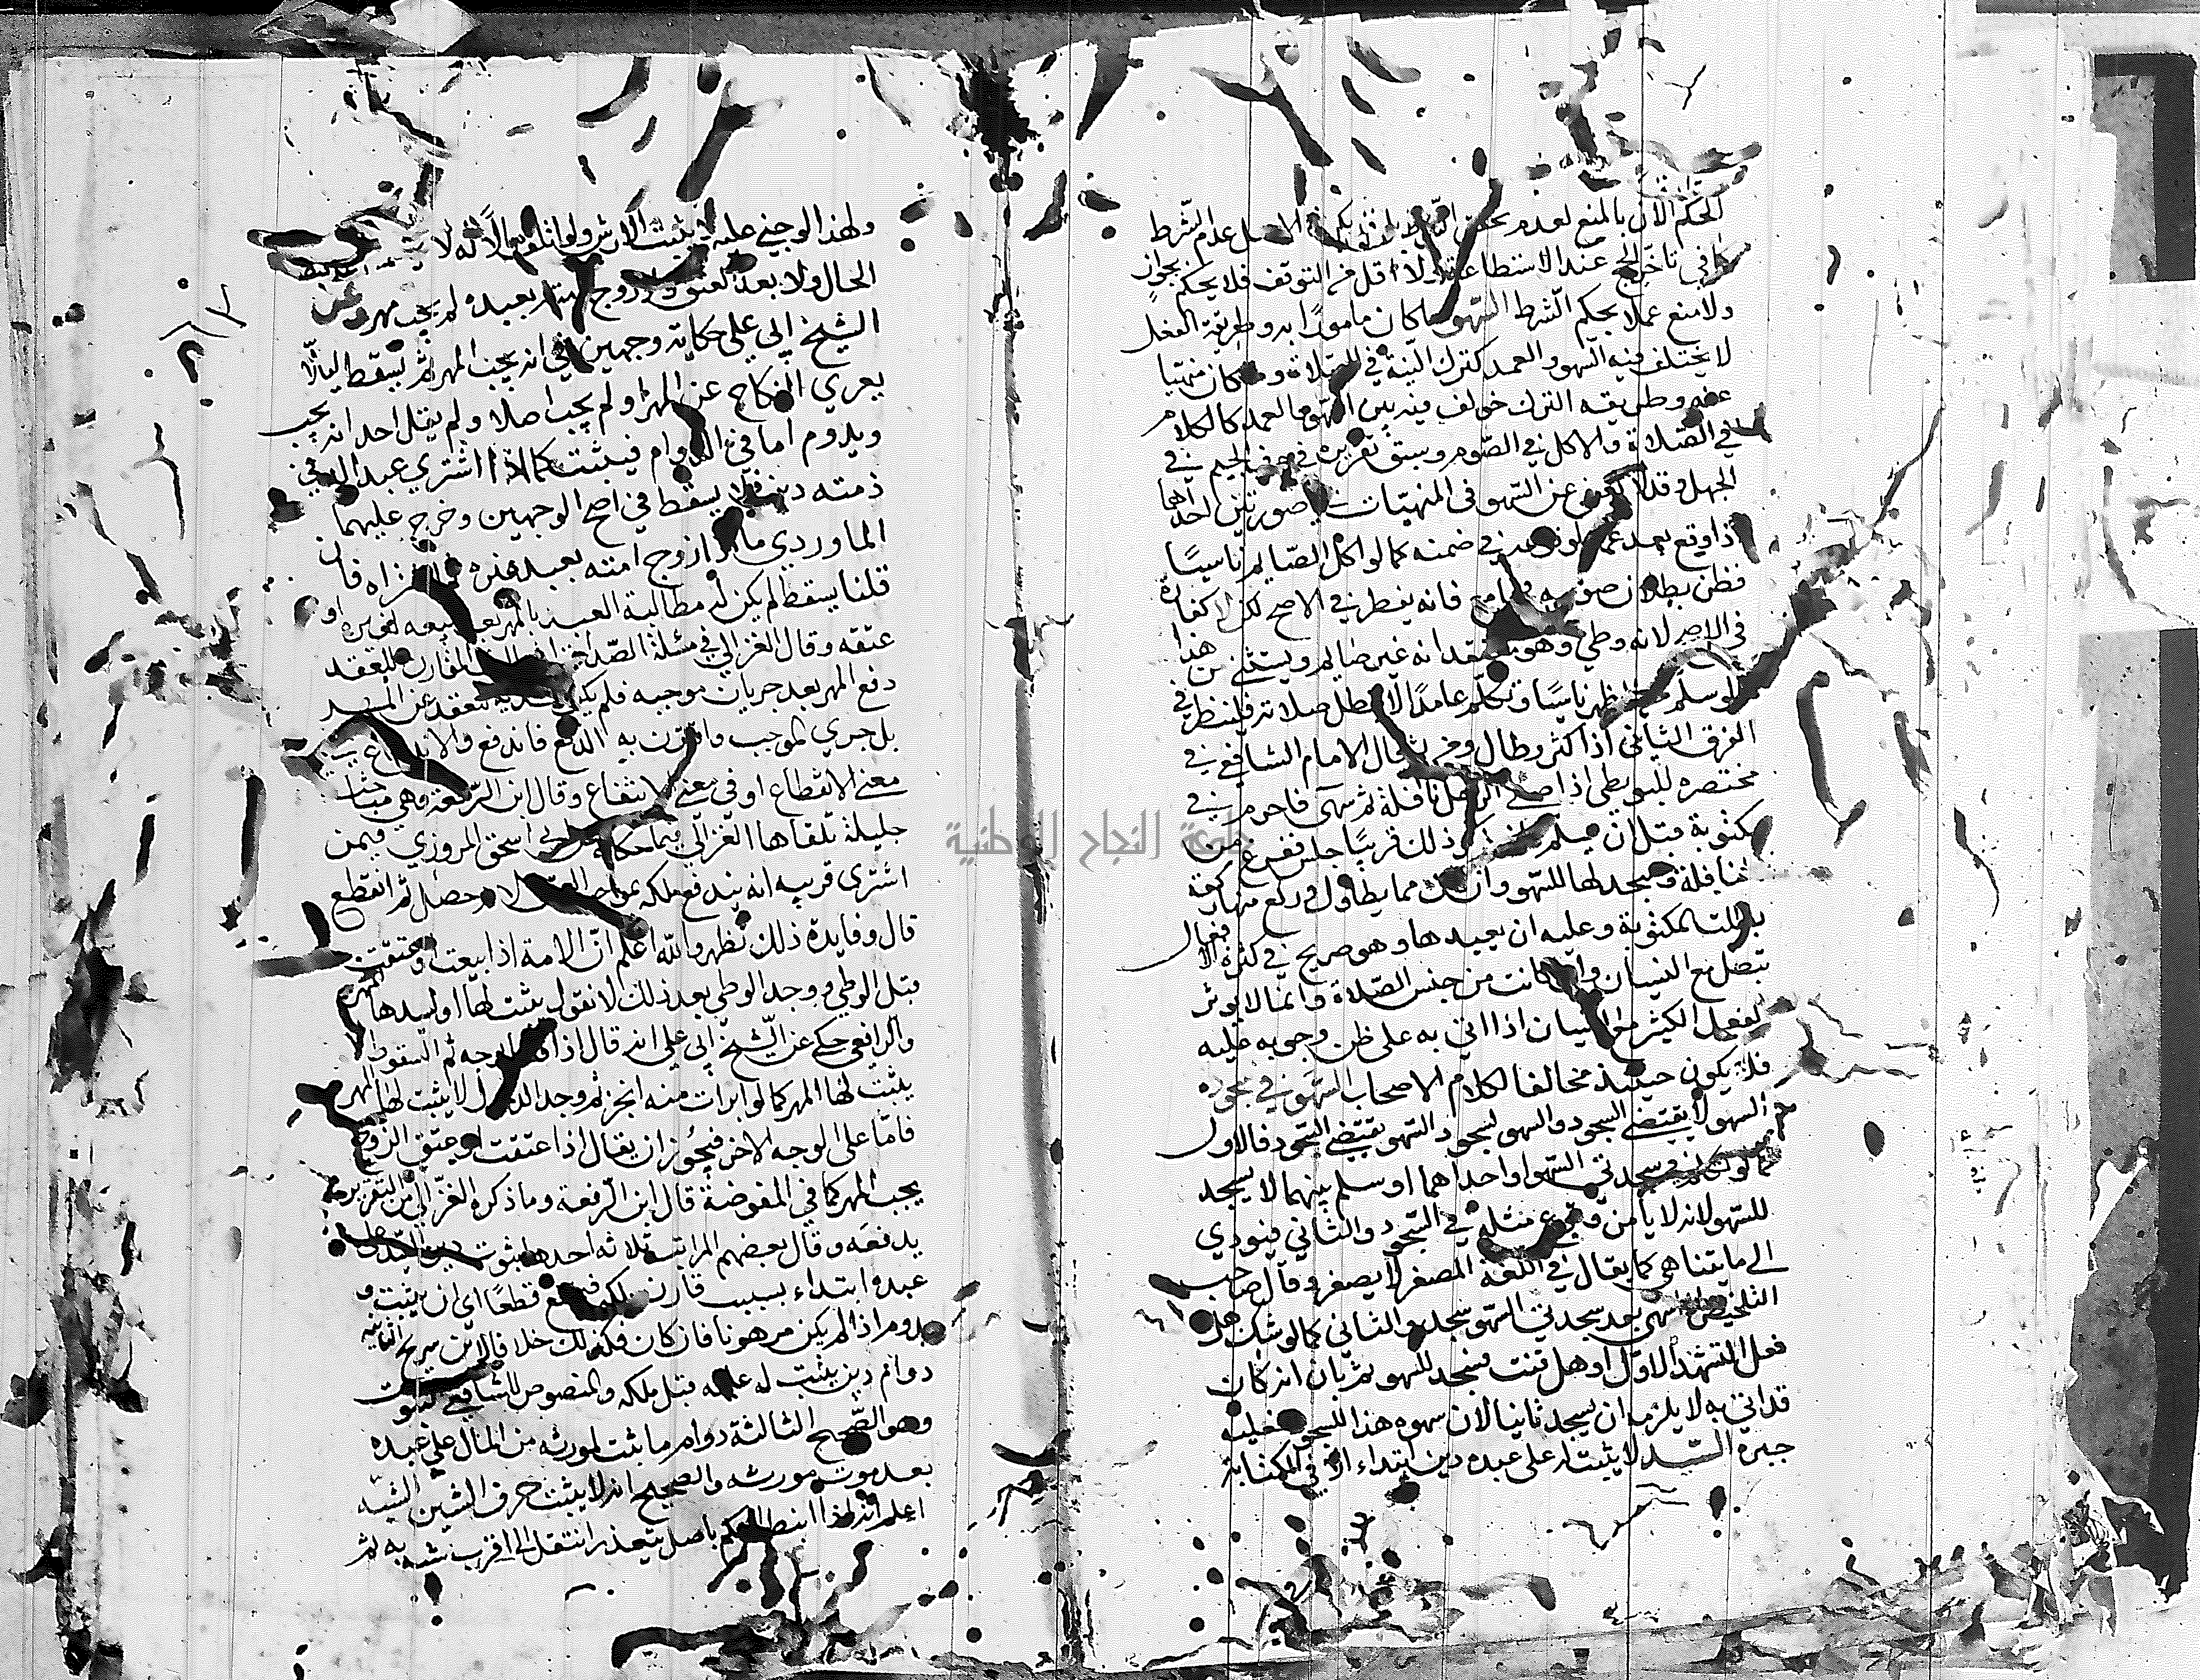 الحكم الآن بالمنع لعدم الشرط الاصل عدم الشرط
في تاخر الحج عند الاستطاعة ولا اقل من التوقف فلا يحكم بجواز
ولا منع عملا بحكم الشرط السهو ما كان مامورا به وطريقه الفعل
لا يختلف فيه السهو والعمد كترك النية في الصلاة وما كان منهيا
عنه وطريقه الترك خولف فيه بين السهو والعمد كالكلام
في الصلاة والاكل في الصوم وسبق تقريره في حرف الجيم في
الجهل وقد لا عن السهو في المنهيات في صورتين احداهما
اذا وقع بعد في ضمنه كما لو اكل الصايم ناسيا
فظن بطلان صومه فجامع فانه يفطر في الاصح لكن لا كفارة
في الاصح لانه وطي وهو معتقد انه غير صايم ويستثنى من هذا
لو سلم من الظهر ناسيا وتكلم عامدا لا تبطل صلاته فلينظر في
الفرق الثاني اذا كثر وطال قال الامام الشافعي في
مختصره للبويطي اذا صلى الرجل نافلة ثم سهى فاحرم في
مكتوبة قبل ان يسلم ذكر ذلك قريبا جلس ففرغ من
النافلة وسجد لها للسهو وان كان مما يطاول وركع منها ركعة
بطلت المكتوبة وعليه ان يعيدها وهو صريح في كثرة الافعال
تبطل مع النسيان وان كانت من جنس الصلاة وانما لا يوثر
الفعل الكثير مع النسيان اذا اتي به على ظن وجوبه عليه
فلا يكون حينيذ مخالفا لكلام الاصحاب السهو في سجود
السهو لا يقتضي السجود والسهو لسجود السهو يقتضي السجود فالاول
كما لو تكلم في سجدتي السهو او احداهما او سلم بينهما لا يسجد
للسهو لانه لا يامن وقوع مثله في السجود والثاني فيودي
الى ما يتناهي كما يقال في اللغة المصغر لا يصغر وقال صاحب
التلخيص سهى بعد سجدتي السهو سجد والثاني كما لو شك هل
فعل التشهد الاول او هل قنت فسجد للسهو ثم بان انه كان
قد اتي به لا يلزمه ان يسجد ثانيا لان سهوه هذا السجود عليه
جبره السيد لا يثبت له على عبده دين ابتداء الا في المكاتبة
ولهذا لو جني عليه لا يثبت الارش ولو اتلف مالا له لا
الحال ولا بعد العتق ولو زوج امته بعبده لم يجب مهر وعن
الشيخ ابي علي حكاية وجهين في انه يجب المهر ثم يسقط ليلا
يعري النكاح عن المهر او لم يجب اصلا ولم يقل احد انه يجب
ويدوم اما في الدوام فيثبت كما اذا اشترى عبدا له في
ذمته دين لا يسقط في اصح الوجهين وخرج عليهما
الماوردي ما اذا زوج امته بعبد غيره ثم اشتراه فان
قلنا يسقط لم يكن له مطالبة العبد بالمهر بعد بيعه لغيره او
عتقه وقال الغزالي في مسئلة الصداق المقارن للعقد
دفع المهر بعد جريان موجبه فلم يكن العقد
بل جري الموجب واقترن به الدفع فاندفع والاندفاع في
معنى الانقطاع او في معنى الانتفاع وقال ابن الرفعة وهي مباحث
جليلة تلقاها الغزالي فيما حكاه عن ابي اسحق المروزي فيمن
اشترى قريبه انه يندفع ملكه بموجب العتق لا انه حصل ثم انقطع
قال وفايدة ذلك تظهر والله اعلم ان الامة اذا بيعت او عتقت
قبل الوطي ووجد الوطي بعد ذلك لا نقول يثبت لها او لسيدها المهر
والرافعي حكى عن الشيخ ابي علي انه قال اذا قلنا بوجه ثم السقوط
يثبت لها المهر كما لو ابرات منه انجز ثم وجد الدخول لا يثبت لها المهر
فاما على الوجه الاخر فيجوز ان يقال اذا عتقت او عتق الزوج
يجب المهر كما في المفوضة قال ابن الرفعة وما ذكره الغزالي من التقرير
يدفعه وقال بعضهم المراتب ثلاثه احدها ثبوت دين السيد على
عبده ابتداء بسبب قارن ملكه قطعا اي ان يثبت و
يدوم اذا لم يكن مرهونا فان كان فكذلك خلافا لابن سريج الثانيه
دوام دين يثبت له عليه قبل ملكه والمنصوص للشافعي السقوط
وهو الصحيح الثالثة دوام ما ثبت لمورثه من المال على عبده
بعد موت مورثه والصحيح انه لا يثبت حرف الشين الشبه
اعلم انه اذا انيط الحكم باصل يتعذر انتقل الى اقرب شبه به ثم
جامعة النجاح الوطنية